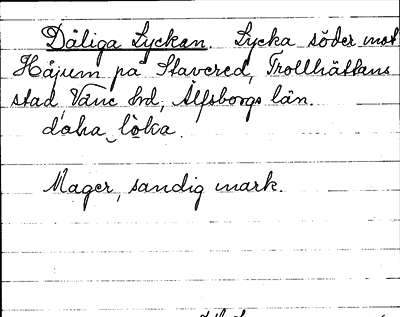 Dåliga Lyckan. Lycka söder mot
Håjum på Stavered, Trollhättans
stad, Väne hd, Älfsborgs län.
daha löka.
Mager, sandig mark.